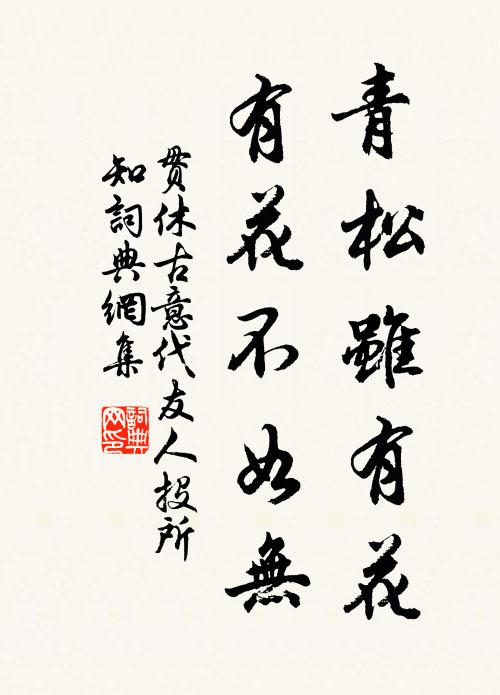 青松雖有花
有花不如無
貫休古意代友人投所
知詞典網集
詞典
网印